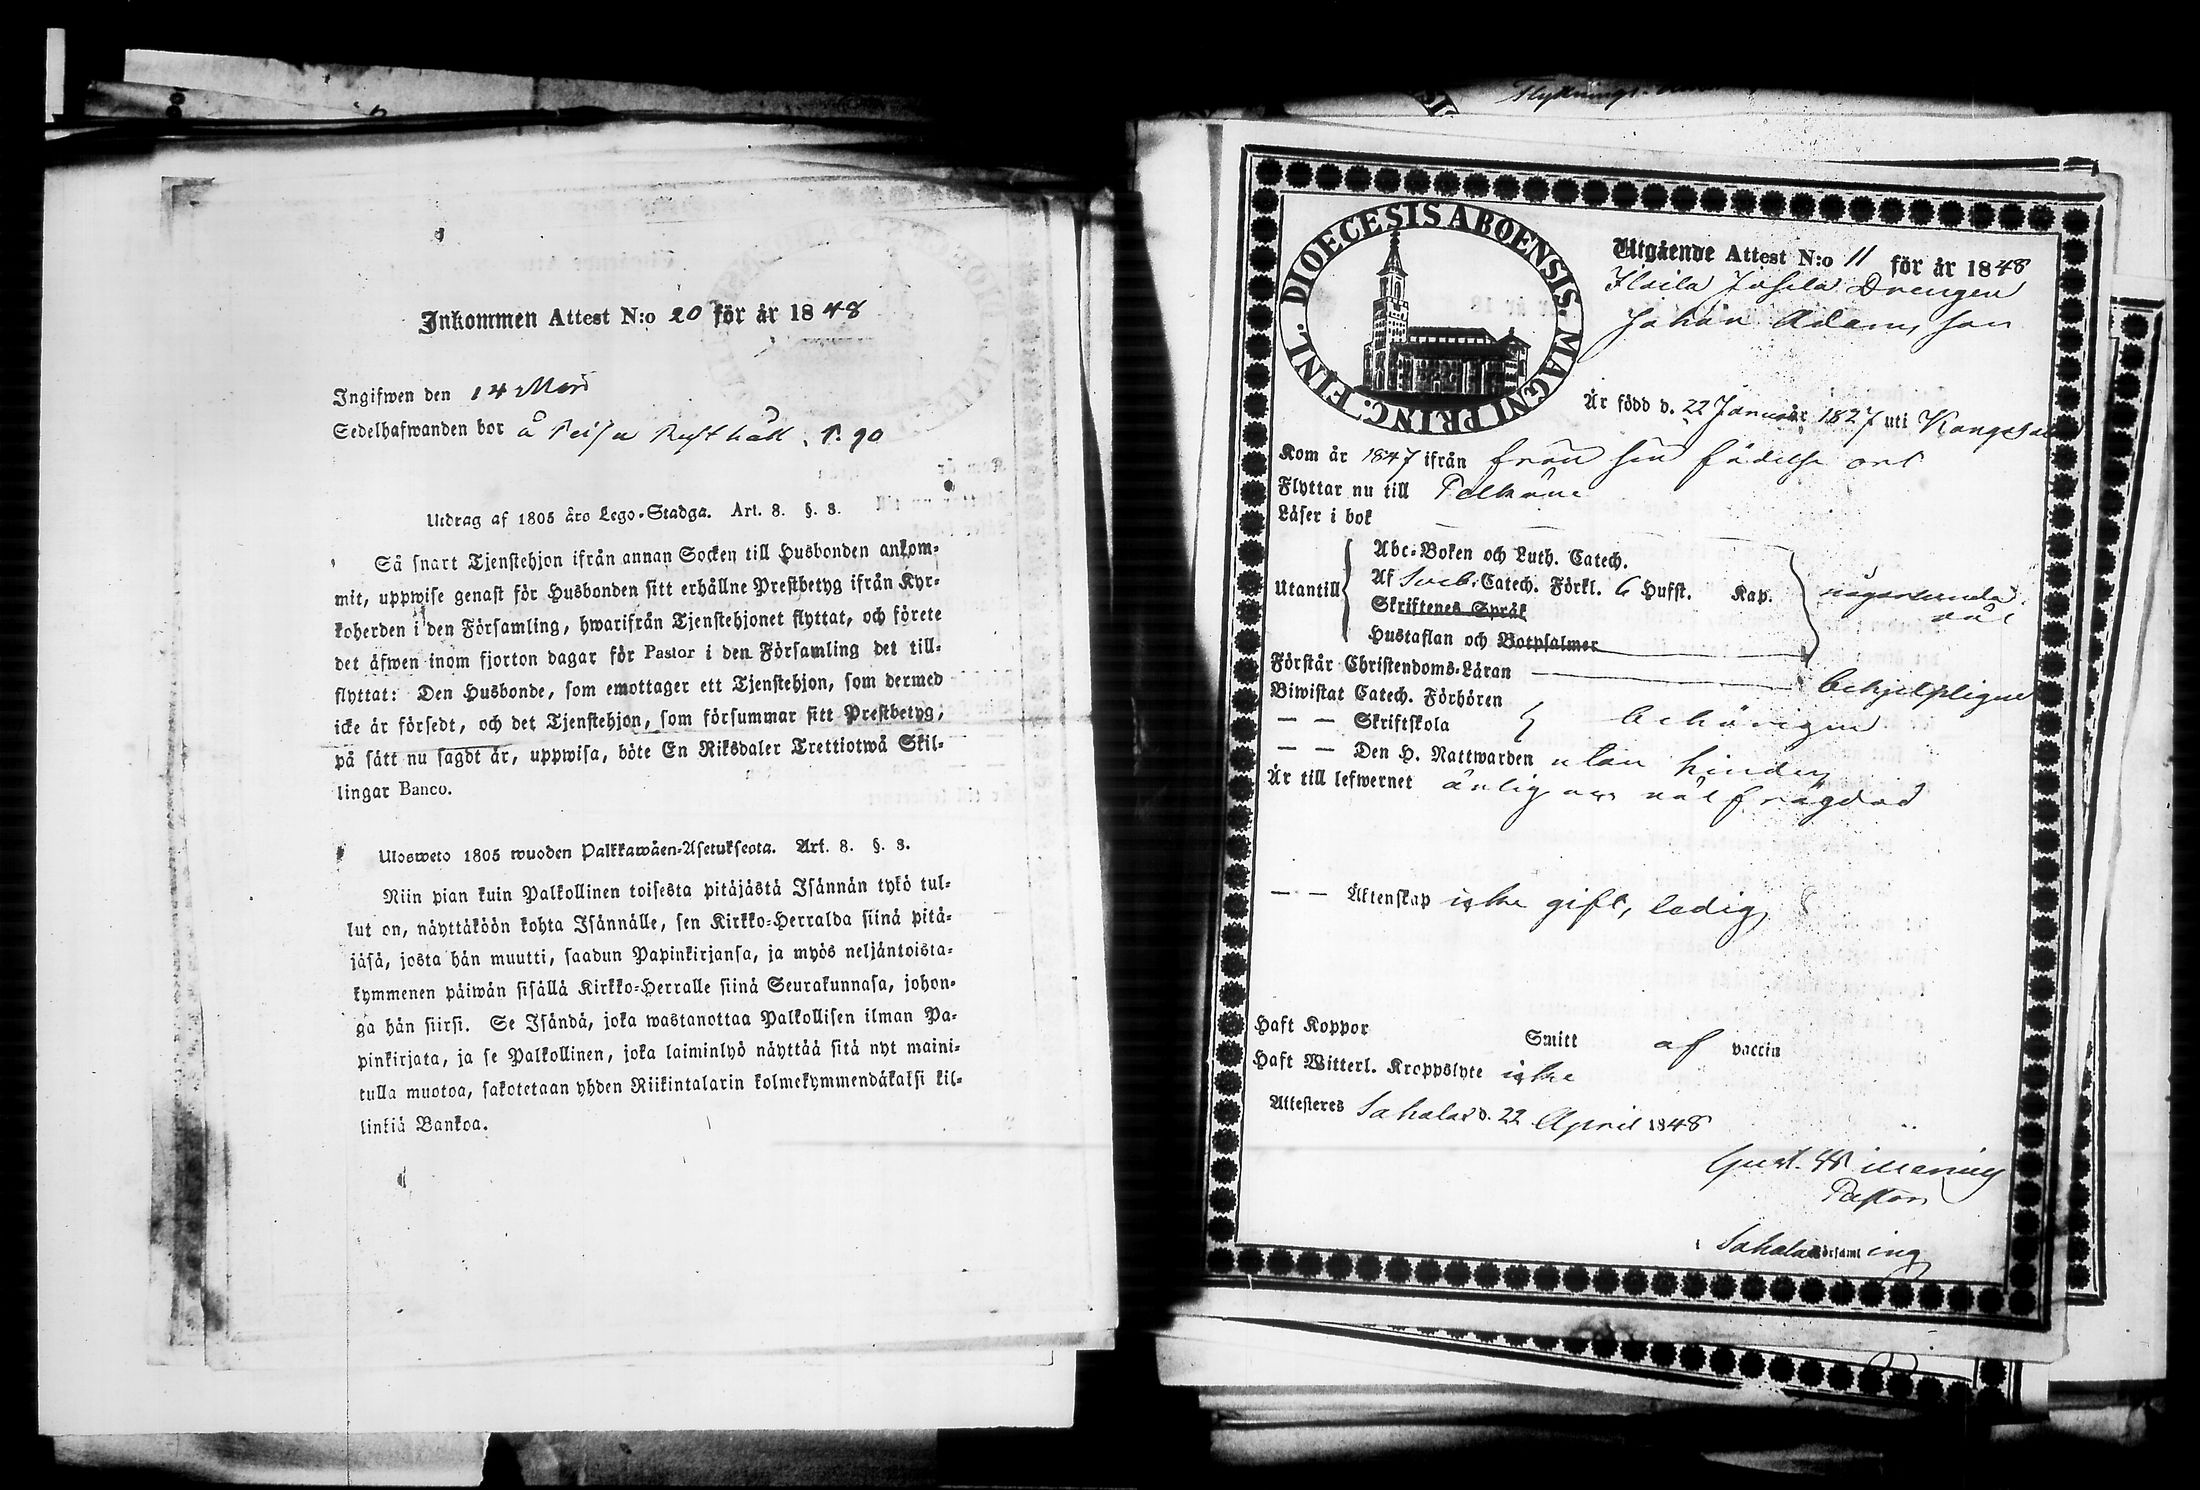 Inkommen Attest N:o 20 för år 1848
Ingifwen den 14 Maji
Sedelhafwanden bor å Rusthåll, p. 90
Utdrag af 1805 års Lego-Stadga. Art. 8. §. 3.
Så snart Tjenstehjon ifrån annan Socken till Husbonden ankom-
mit, uppwise genast för Husbonden sitt erhållne Prestbetyg ifrån Kyr-
koherden i den Församling, hwarifrån Tjenstehjonet flyttat, och förete
det äfwen inom fjorton dagar för Pastor i den Församling det till-
flyttat: Den Husbonde, som emottager ett Tjenstehjon, som dermed
icke är försedt, och det Tjenstehjon, som försummar sitt Prestbetyg,
på sätt nu sagdt är, uppwisa, böte En Riksdaler Trettiotwå Skil-
lingar Banco.
Ulosweto 1805 wuoden Palkkawäen-Asetuksesta. Art. 8. §. 3.
Niin pian kuin Palkollinen toisesta pitäjästä Isännän tykö tul-
lut on, näyttäköön kohta Isännälle, sen Kirkko-Herralda siinä pitä-
jäsä, josta hän muutti, saadun Papinkirjansa, ja myös neljäntoista-
kymmenen päiwän sisällä Kirkko-Herralle siinä Seurakunnasa, johon-
ga hän siirsi. Se Isändä, joka wastanottaa Palkollisen ilman Pa-
pinkirjata, ja se Palkollinen, joka laiminlyö näyttää sitä nyt maini-
tulla muotoa, sakotetaan yhden Riikintalarin kolmekymmendäkaksi kil-
linkiä Bankoa.
DIOECESIS ABOENSIS. MAGNI PRINC. FINL.
Utgående Attest N:o 11 för år 1848
Drengen
Johan Adamsson
Är född d. 22 Januar år 1827 uti Kangasala
Kom år 1847 ifrån från sin födelse ort
Flyttar nu till Pelkäne
Läser i bok
Utantill
Abc-Boken och Luth. Catech.
Af Sveb. Catech. Förkl. 6 Hufst. Kap.
Skriftenes Språk
Hustaflan och Botpsalmer
någorlunda
väl
Förstår Christendoms-Läran behjelpligen
Biwistat Catech. Förhören
— — Skriftskola behörigen
— — Den H. Nattwarden utan hinder
Är till lefwernet ärlig och väl frägdad
— — Äktenskap icke gift, ledig
Haft Koppor Smitt af vaccin
Haft Witterl. Kroppslyte icke
Attesteres Sahalax d. 22 April 1848
Gust. Wilh.
Pastor
i Sahalax Församling